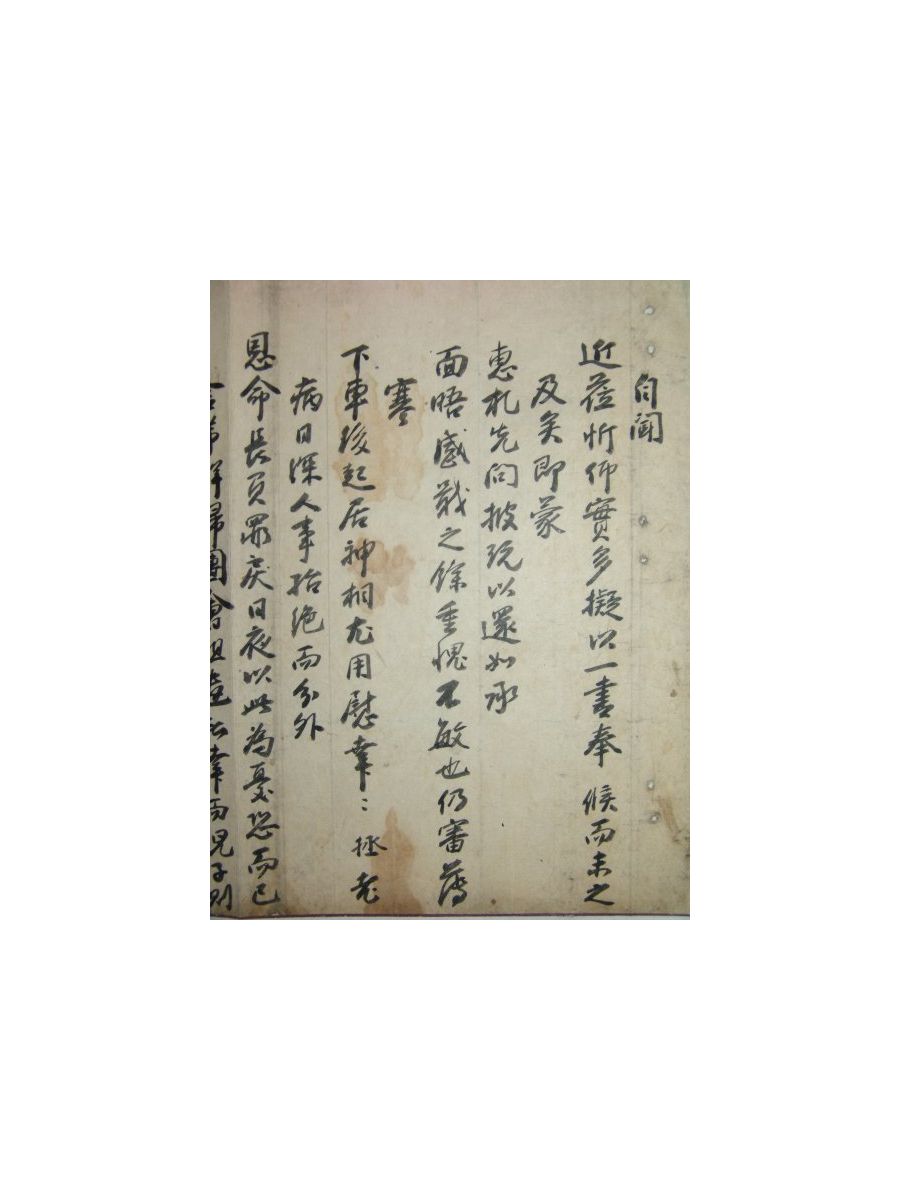 自聞
近莅忻仰實多擬以一書奉候而未之
及矣即蒙
惠札先問披玩以還如承
面晤感戢之餘重愧不敏也仍審薄
寒
下車後起居神相尤用慰幸〻拯老
病日深人事殆絶而分外
恩命長負罪戾日夜以此為憂恐而已
幸而兒子則